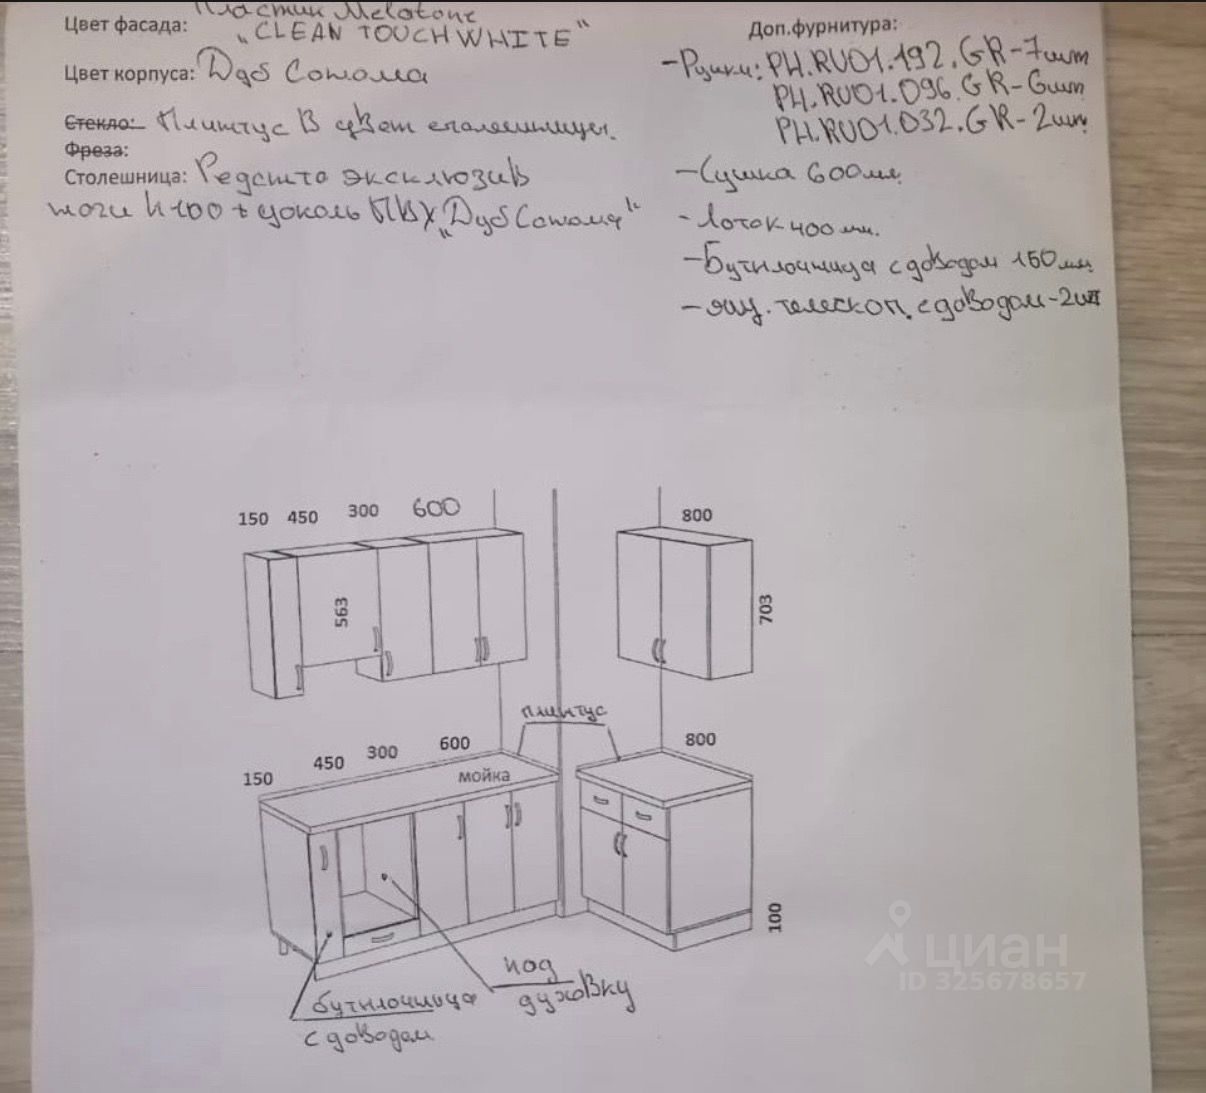 Цвет фасада: Пластик Melatone
"CLEAN TOUCH WHITE"
Цвет корпуса: Дуб Сонома
Стекло: Плинтус в цвет столешницы.
Фреза:
Столешница: эксклюзив
ноги h100 + цоколь ПВХ "Дуб Сонома"
Доп.фурнитура:
- Ручки: РН.RU01.192.GR-7шт
РН.RU01.096.GR-6шт
РН.RU01.032.GR-2шт.
- Сушка 600мм
- Лоток 400мм.
- Бутылочница с доводом 150мм
- ящ. телескоп. с доводом-2шт
150 450 300 600
800
563
703
плинтус
150 450 300 600
800
мойка
100
под
духовку
бутылочница
с доводом
циан
ID 325678657